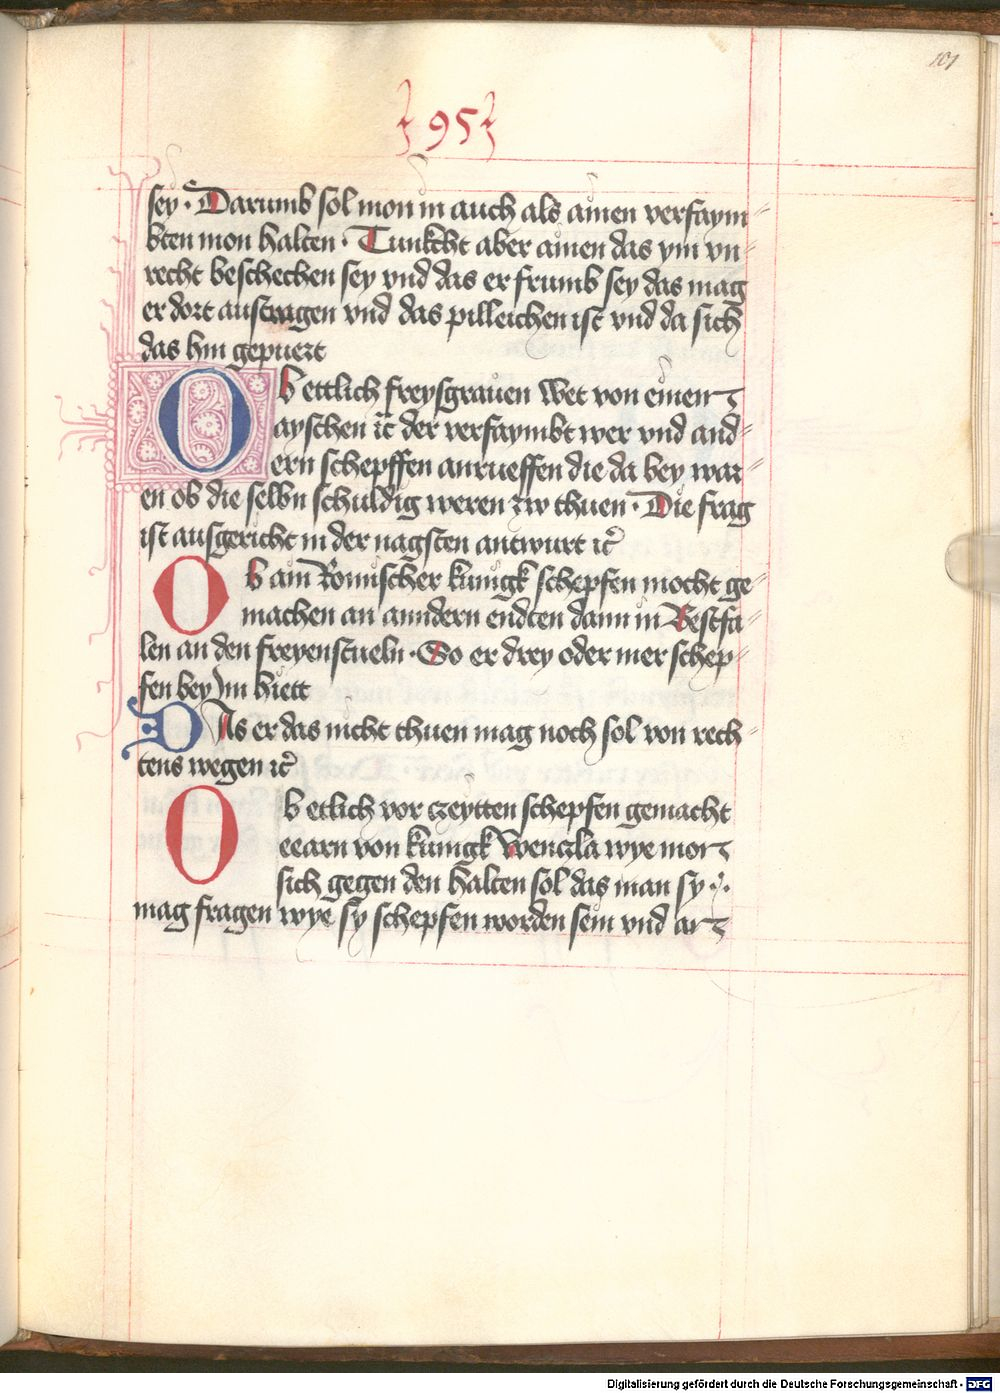 101
95
sey · Darumb sol mon in auch als ainen verfaym
bten mon halten · Tunkcht aber ainen das ym vn
recht beschechen sey vnd das er frumb sey das mag
er dort austragen vnd das pilleichen ist vnd da sich
das hin gepuert
Ob ettlich freysgrauen Wet von einer
ayschen ic̃ der verfaymbt wer vnd and
ern schepffen anrueffen die da bey war
en ob die selbn schuldig weren zw thuen · Die frag
ist ausgericht in der nagsten antwurt ic̃
Ob ain Romischer kunigk schepfen mocht ge
machen an anndern endten dann in Westfa
len an den freyenstueln · So er drey oder mer schep
fen bey Im hiett
DAs er das nicht thuen mag noch sol von rech
tens wegen ic̃
Ob etlich vor czeytten schepfen gemacht
von kunigk Wenczla wye mor
sich gegen den halten sol das man sy
mag fragen wye sy schepfen worden sein vnd ar
Digitalisierung gefördert durch die Deutsche Forschungsgemeinschaft - DFG